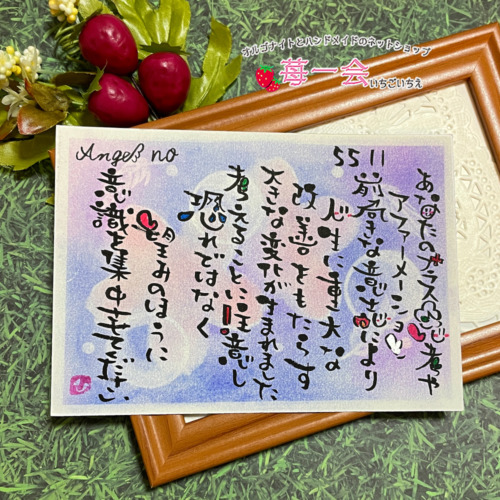 オルゴナイトとハンドメイドのネットショップ
苺一会
いちごいちえ
Angel no
5511
あなたのプラス思考や
アファーメーション
前向きな意志により
人生に重大な
改善をもたらす
大きな変化が生まれました
考えることに注意し
恐れではなく
望みのほうに
意識を集中させてください